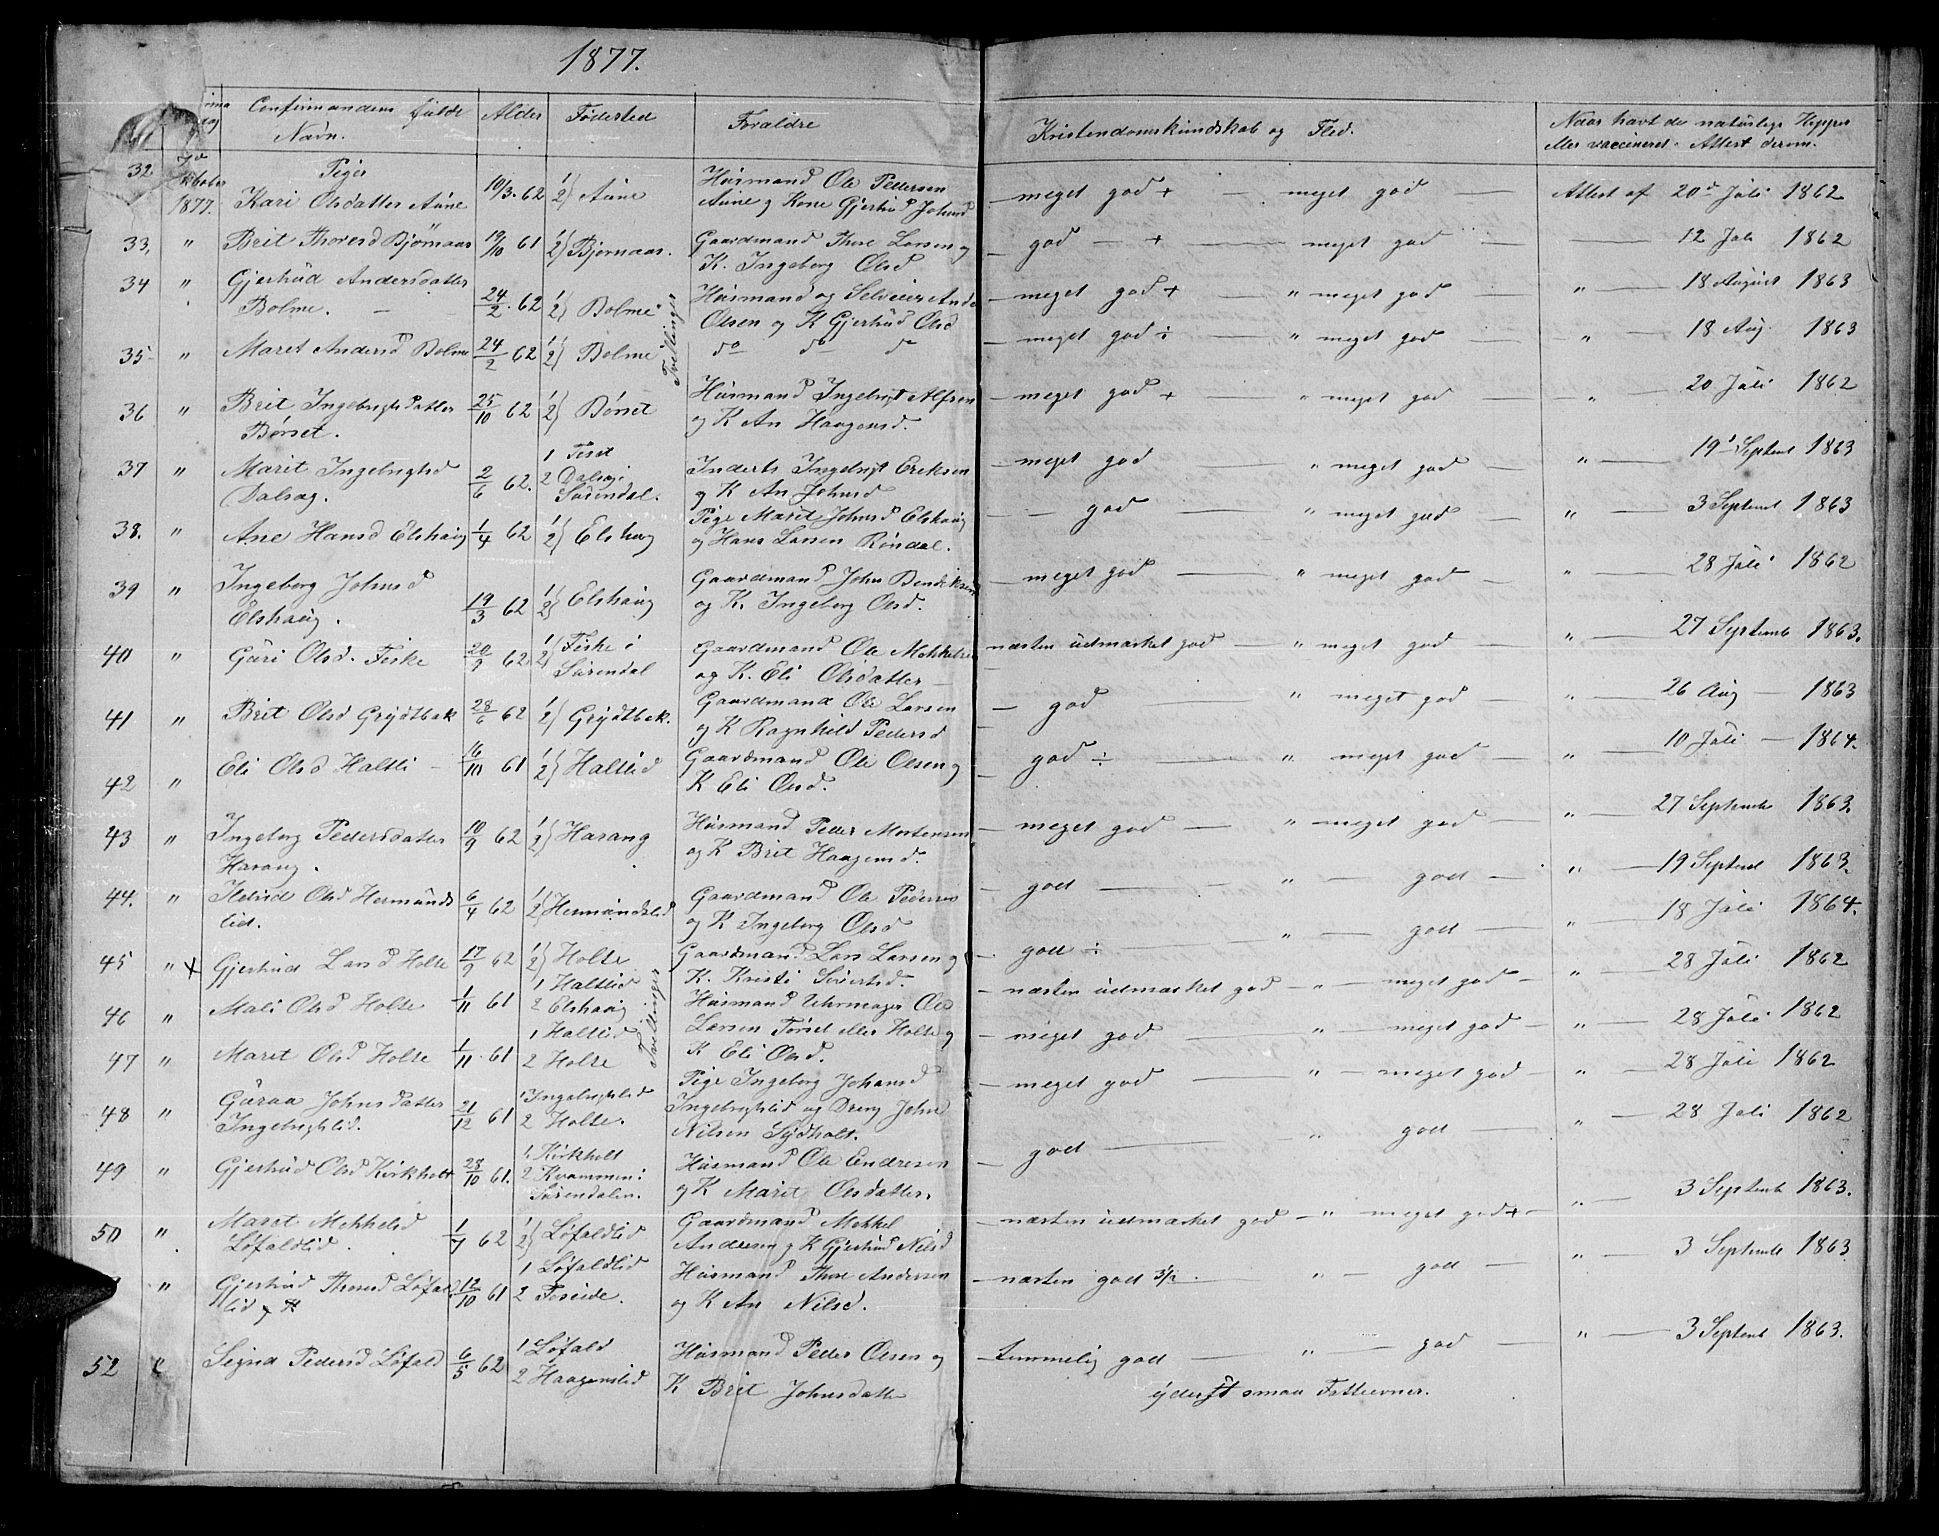 1877.
Confirmandens fulde Navn. Alder Fødested Foraldre Kristendomskundskab og Flid. Naar havt de naturlige Kopper eller vaccineret. Attest derom.
Piger
32. 1877. Kari Olsdatter Aune 10/3. 62 1 2} Aune Husmand Ole Pedersen Aune og Kone Gjertrud Johnsd meget god + — meget god — Attest af 20de Juli 1862
33. " Brit Thoresd Bjørnaas 19/10 61 1 2} Bjørnaas. Gaardmand Thore Larsen og K. Ingeborg Olsd god — + — meget god — 12 Juli 1862
34 " Gjertrud Andersdatter Bolme. 24/2. 62 1 2} Bolme Tvillinger Husmand og Selveier Anders Olsen og K Gjertrud Olsd meget god + — " meget god — " — 18 August 1863
35 " Maret Andersd Bolme 24/2 62 1 2} Bolme do do do meget god ÷ — " meget god — " — 18 Aug. 1863
36 " Brit Ingebrigtsdatter Børset. 25/10 62 1 2} Børset Husmand Ingebrigt Alfsen og K An Haagensd. meget god + — " meget god — " — 20 Juli 1862
37 " Marit Ingebrigtsd Dalsæg. 2/6 62. 1 2 Dalsæg i Surendal. Inderst Ingebrigt Eriksen og K An Johnsd — meget god " meget god — " — 19 Septemb 1863
38. " Ane Hansd Elshaug 1/4 62 1 2} Elshaug Pige Marit Johnsd Elshaug og Hans Larsen Røndal. — god — " meget god — " — 3 Septemb 1863
39 " Ingeborg Johnsd Elshaug. 19/3 62 1 2} Elshaug Gaardmand John Bendiksen og K. Ingeborg Olsd. — meget god — " meget god — " — 28 Juli 1862
40 " Guri Olsd. Fiske 20/9 62 1 2} Fiske i Surendal Gaardmand Ole Mekkelsen og K. Eli Olsdatter — næsten udmærket god — " meget god — " — 27 Septemb 1863.
41 " Brit Olsd Grydtbæk 28/6 62 1 2} Grydtbæk. Gaardmand Ole Larsen og K Ragnhild Pedersd — god — " meget god — " — 26 Aug — 1863
42 " Eli Olsd Haltli — 16/10 61 1 2} Haltlid Gaardmand Ole Olsen og K Eli Olsd. — god ÷ — " meget god — " — 10 Juli — 1864.
43 " Ingeborg Pedersdatter Harang. 10/9 62 1 2} Harang Husmand Peder Mortensen og K Brit Haagensd. — meget god — " meget god — " — 27 Septemb 1863.
44. " Ildrid Olsd Hermundslid. 6/4 62 1 2} Hermundslid Gaardmand Ole Pedersen og K Ingeborg Olsd — god — " — god — " — 19 Septemb 1863.
45 " x Gjertrud Larsd Holte 17/9 62 1 2} Holte Gaardmand Lars Larsen og K. Kristi Sivertsd. — god ÷ — " — god — " — 18 Juli 1864.
46 " Mali Olsd Holte 1/11 61 1 Haltlid 2 Elshaug Tvillinger Husmand Uhrmager Ole Larsen Tørset eller Holte og K Eli Olsd. — næsten udmærket god — " — meget god — " — 28 Juli 1862
47 " Maret Olsd Holte 1/11. 61 1 Haltlid 2 Holte — meget god — " — meget god — " — 28 Juli 1862
48 " Guraa Johnsdatter Ingebrigtslid. 21/12 61 1 Ingebrigtslid 2 Holte. Pige Ingeborg Johansd Ingebrigtslid og Dreng John Nilsen Sydholt. — meget god — " — meget god — " — 28 Juli 1862
49 " Gjertrud Olsd Kirkholt 28/10 61. 1 Kirkholt 2 Kvammen i Surendalen. Husmand Ole Endresen og K Marit Olsdatter. — god — " god — " — 28 Juli 1862
50 " Maret Mekkelsd Løfaldlid. 1/7 62 1 2} Løfaldlid Gaardmand Mekkel Andersen og K Gjertrud Nilsd — næsten udmærket god — " meget god + — " — 3 Septemb 1863.
" Gjertrud Thoresd Løfaldlid 12/10 61 1 Løfaldlid 2 Foseide. Husmand Thore Andersen og K An Nilsd. — næsten god 3½. — " — god — " — 3 Septemb 1863
52 " Signe Pedersd Løfald 6/5 62 1 Løfald 2 Haagenslid Husmand Peder Olsen og K Brit Johnsdatter — temmelig god — " — god — " — 3 Septemb 1863.
yderst smaa Fatteevner.